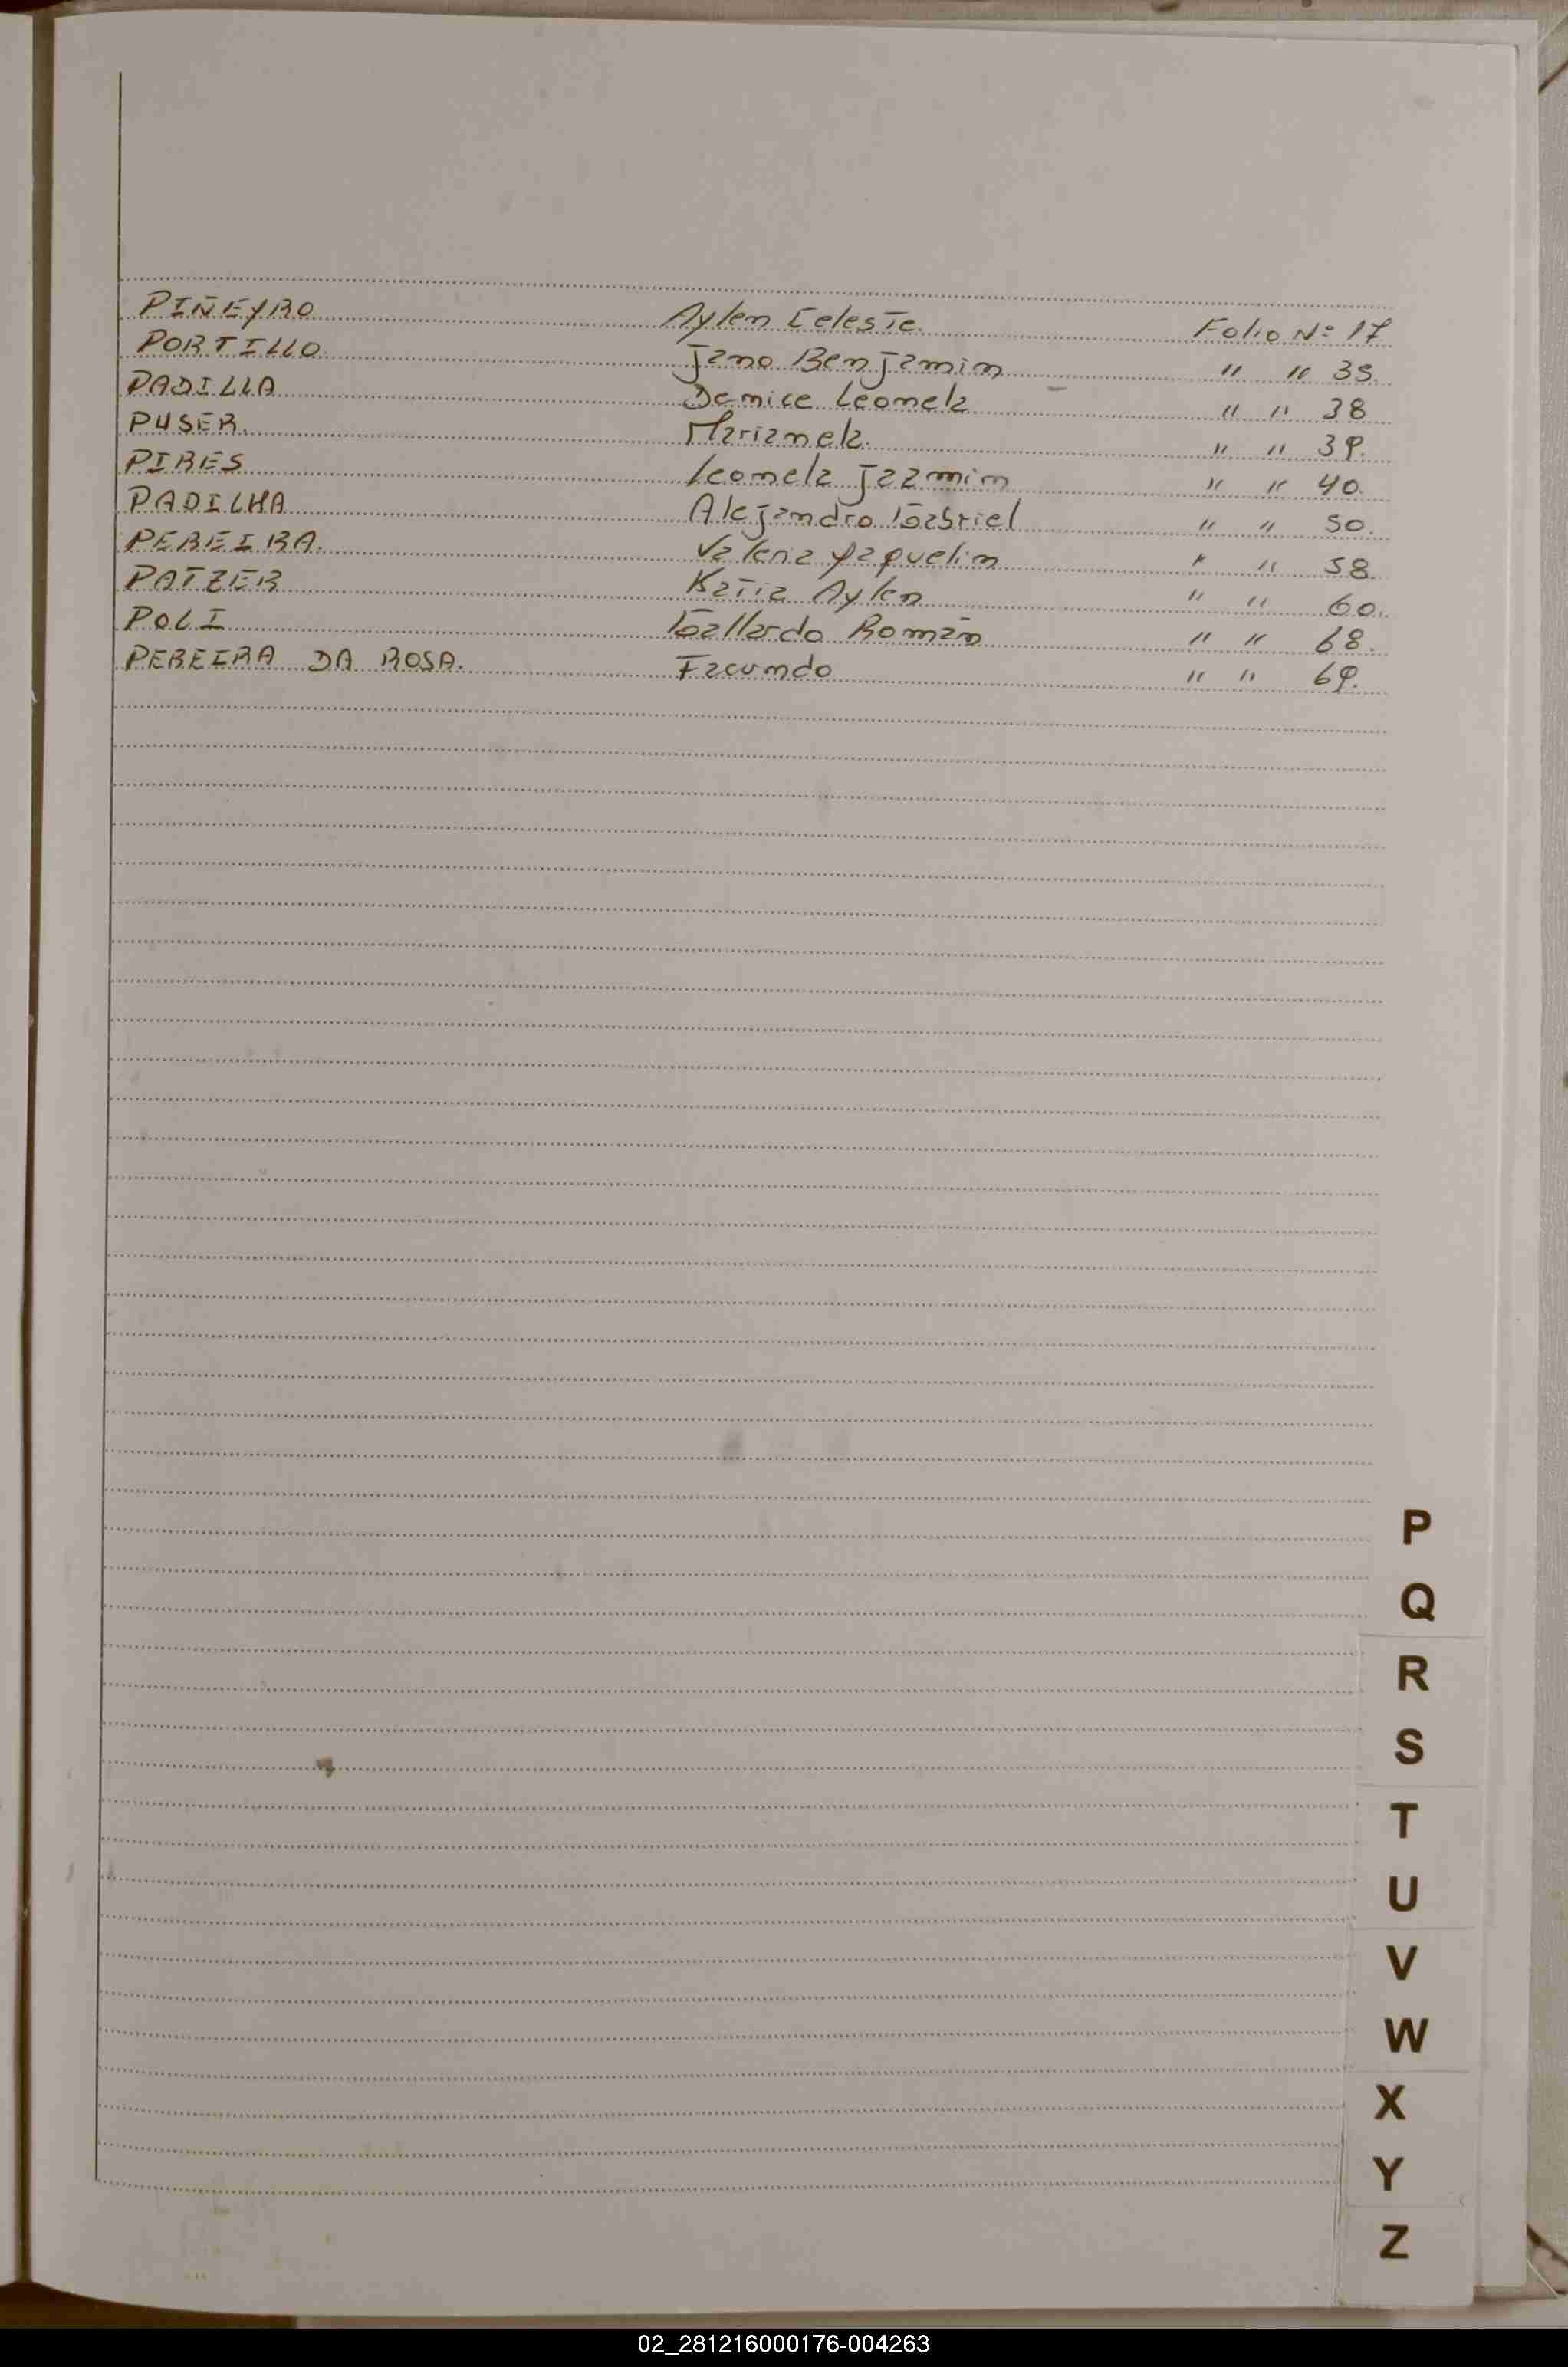 PIÑEYRO Aylen Celeste Folio Nº 17
PORTILLO Jano Benjamin " " 35.
PADILLA Denice Leonela " " 38
PUSER. Marianela. " " 39.
PIRES Leonela Jazmin " " 40.
PADILHA Alejandro Gabriel " " 50.
PEREIRA. Valeria Yaquelin " " 58.
PATZER Katia Aylen " " 60.
POLI Gallardo Román " " 68.
PEREIRA DA ROSA. Facundo " " 69.
P
Q
R
S
T
U
V
W
X
Y
Z
02_281216000176-004263